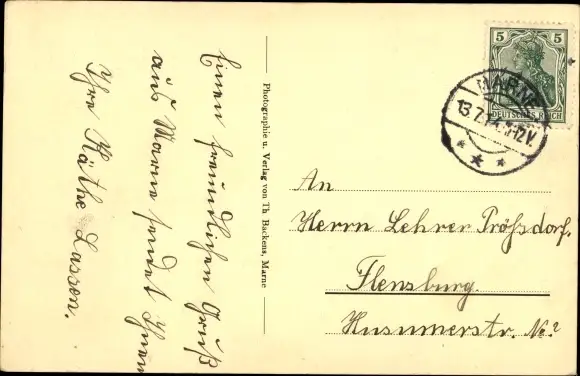 Einen freundlichen Gruß
aus Marne sendet Ihnen
Ihre Käthe Lassen.
Photographie u. Verlag von Th. Backens, Marne
5 5
DEUTSCHES REICH
MARNE
13.7.14. 11-12V.
An
Herrn Lehrer Pröhsdorf,
Flensburg.
Husumerstr. No. 2